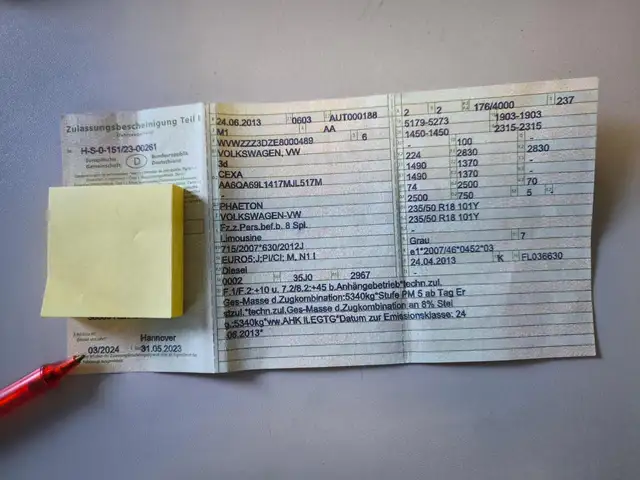 Zulassungsbescheinigung Teil I
H-S-0-151/23-00261
Europäische Gemeinschaft
D
Bundesrepublik Deutschland
Hannover
03/2024
31.05.2023
24.06.2013 0603 AUT000188
M1 AA
WVWZZZ3DZE8000489 6
VOLKSWAGEN, VW
3d
CEXA
AA6QA69L1417MJL517M
PHAETON
VOLKSWAGEN-VW
Fz.z.Pers.bef.b. 8 Spl.
Limousine
715/2007*630/2012J
EURO5;J;PI/CI; M, N1 I
Diesel
0002 35J0 2967
F.1/F.2:+10 u. 7.2/8.2:+45 b.Anhängebetrieb*techn.zul.
Ges-Masse d.Zugkombination:5340kg*Stufe PM 5 ab Tag Er
stzul.*techn.zul.Ges-Masse d.Zugkombination an 8% Stei
g.:5340kg*ww.AHK lLEGTG*Datum zur Emissionsklasse: 24
.06.2013*
2 2 176/4000 237
5179-5273 1903-1903
1450-1450 2315-2315
- 100 -
224 2830 2830
1490 1370 -
1490 1370 -
74 2500 70
2500 750 5 -
235/50 R18 101Y
235/50 R18 101Y
-
Grau 7
e1*2007/46*0452*03
24.04.2013 K FL036630